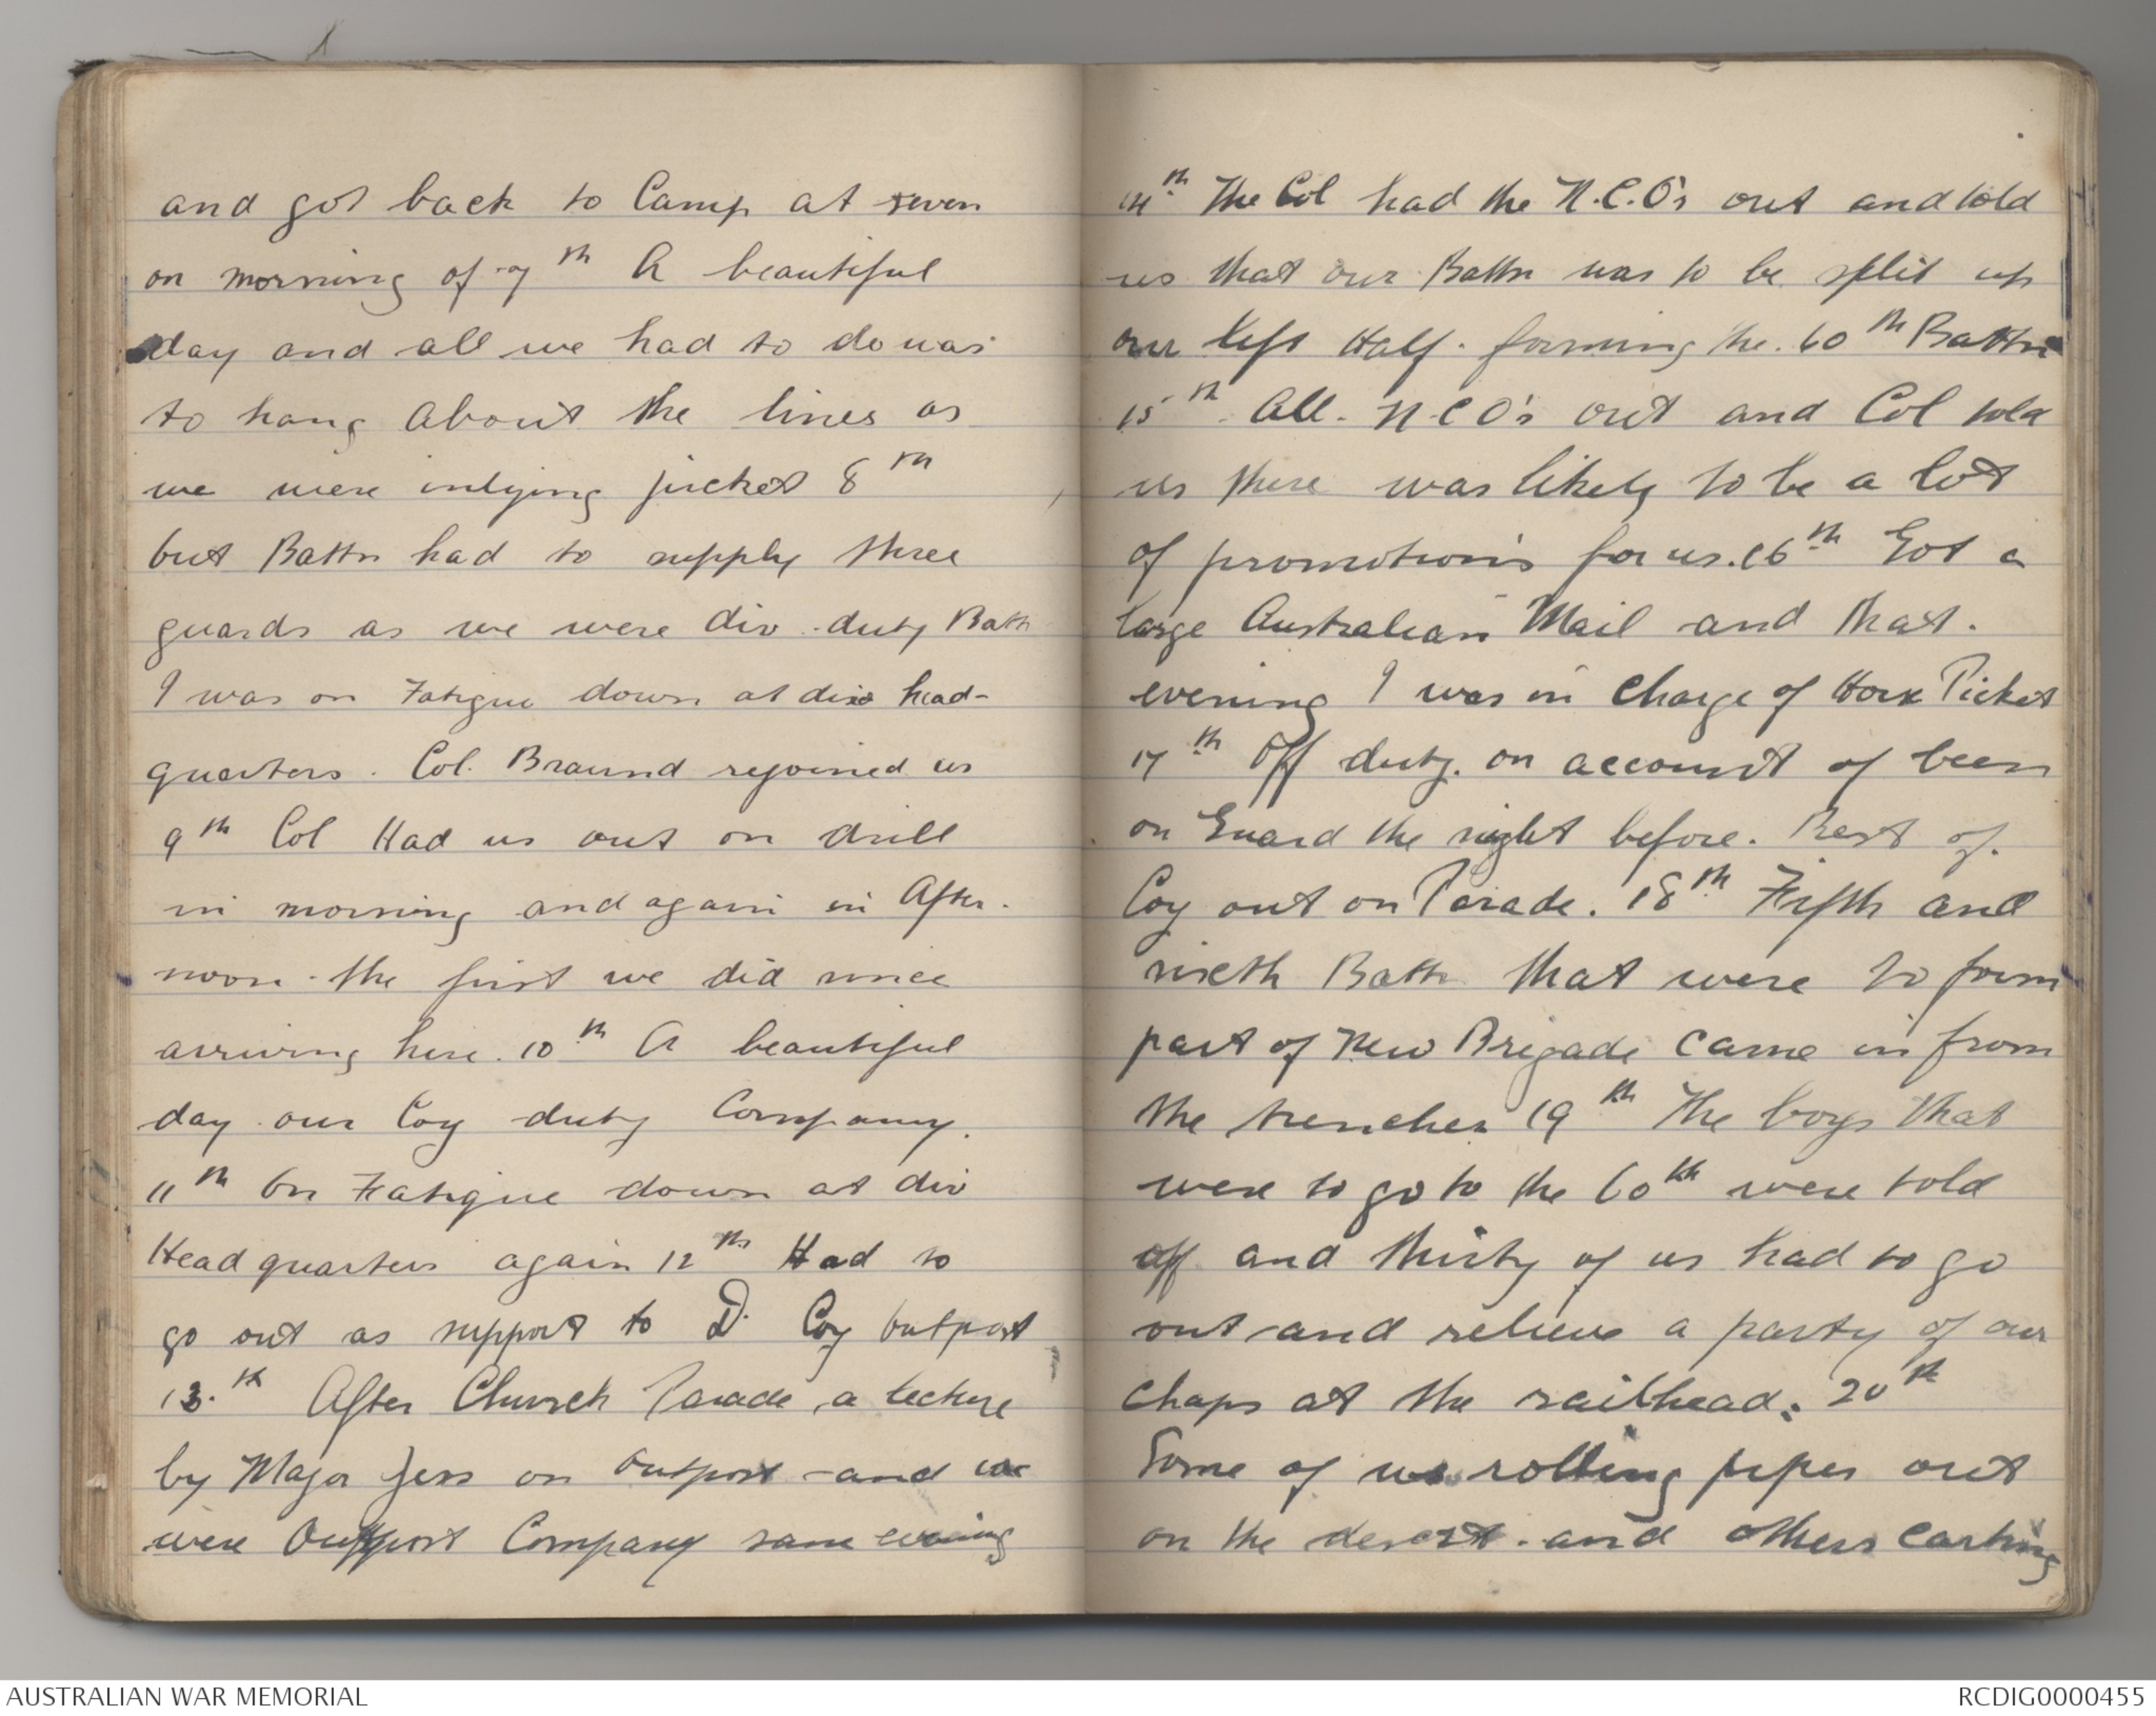 and got back to Camp at seven
on morning of 7th A beautiful
day and all we had to do was
to hang about the lines as
we were inlying picket 8th
but Battn had to supply three
guards as we were div. duty Battn
I was on Fatigue down at div head-
quarters. Col. Braund rejoined us
9th Col Had us out on drill
in morning and again in After-
noon. the first we did since
arriving here. 10th A beautiful
day our Coy duty Company.
11th On Fatigue down at div
Head quarters again 12th Had to
go out as support to D. Coy outpost
13.th After Church Parade a lecture
by Major Jess on outpost and we
were Outpost Company same evening
14th The Col had the N.C.O's out and told
us that our Battn was to be split up
our left Half. forming the. 60th Battn
15th All. N.C.O's out and Col told
us there was likely to be a lot
of promotions for us. 16th Got a
large Australian Mail and that.
evening I was in Charge of Horse Picket
17th Off duty. on account of been
on Guard the night before. Rest of.
Coy out on Parade. 18th Fifth and
sixth Battn that were to form
part of New Brigade came in from
the trenches 19th The boys that
were to go to the 60th were told
off and thirty of us had to go
out and relieve a party of our
chaps at the railhead. 20th
Some of us rolling pipes out
on the desert. and others carting
AUSTRALIAN WAR MEMORIAL
RCDIG0000455